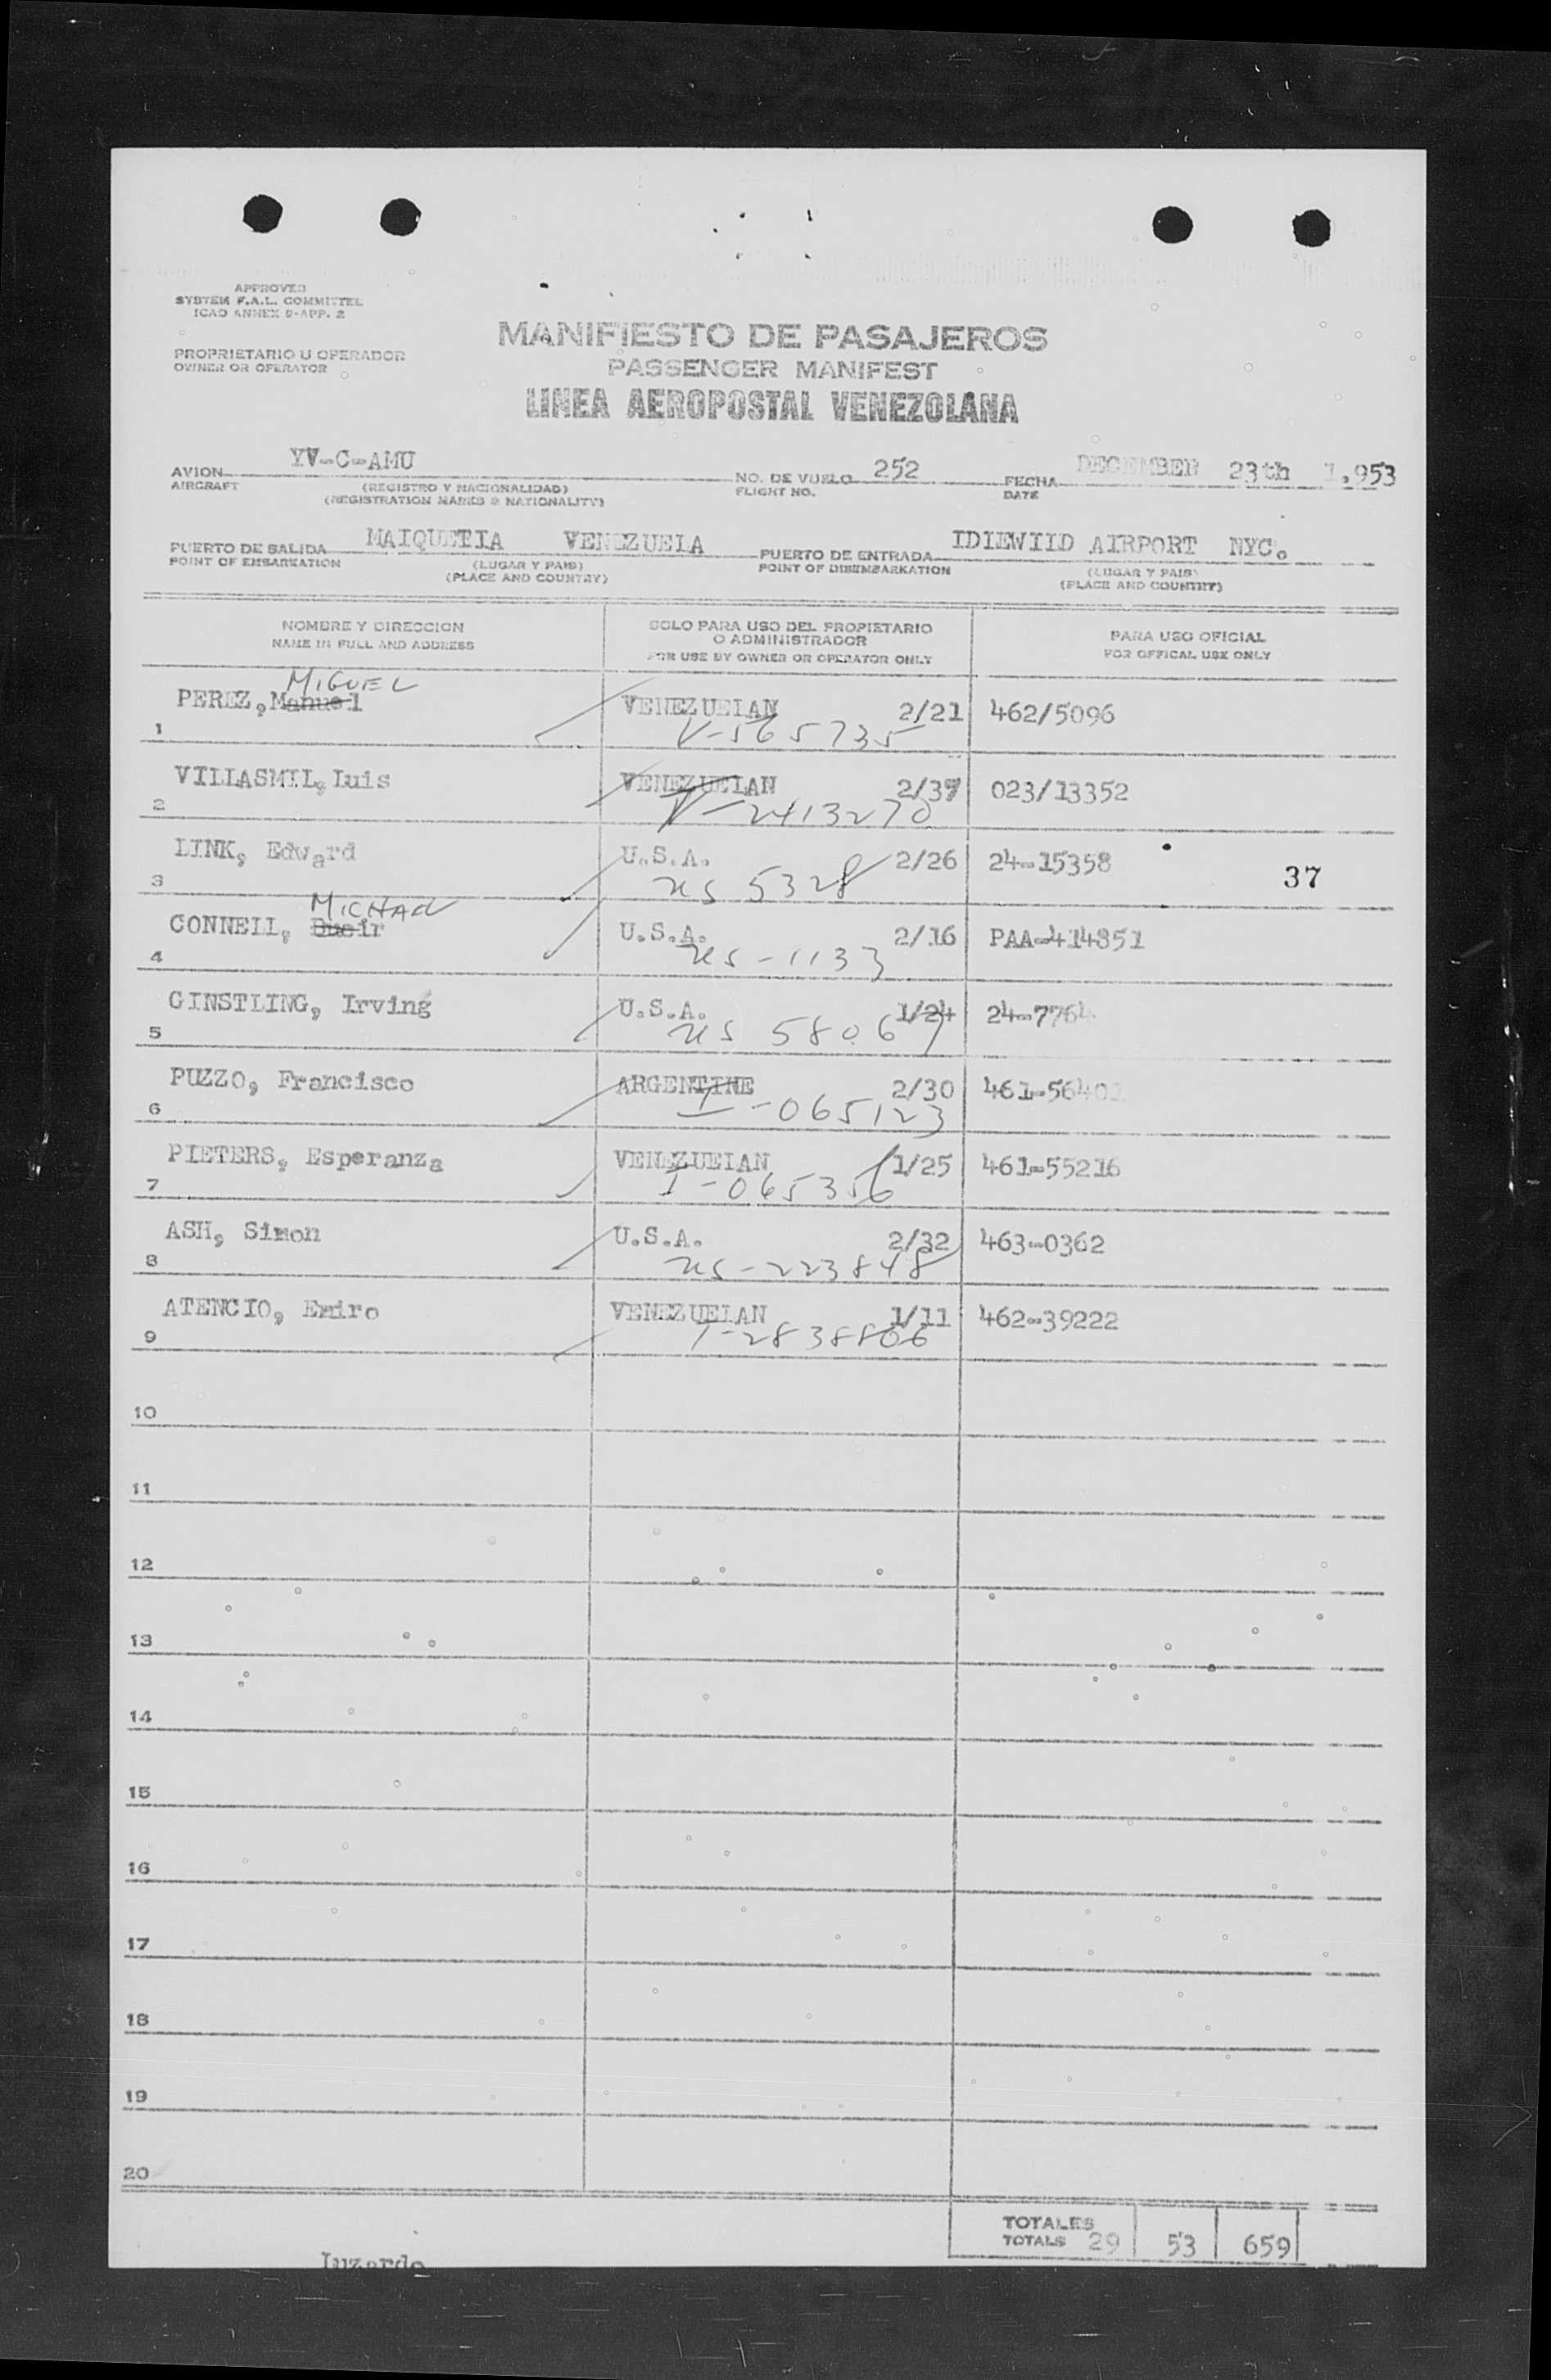 APPROVED
SYSTEM F.A.L. COMMITTEE
ICAO ANNEX 9-APP. 2
PROPRIETARIO U OPERADOR
OWNER OR OPERATOR
MANIFIESTO DE PASAJEROS
PASSENGER MANIFEST
LINEA AEROPOSTAL VENEZOLANA
AVION YV-C-AMU NO. DE VUELO 252 FECHA DECEMBER 23th 1,953
AIRCRAFT (REGISTRO Y NACIONALIDAD) FLIGHT NO. DATE
(REGISTRATION MARKS & NATIONALITY)
PUERTO DE SALIDA MAIQUETIA VENEZUELA PUERTO DE ENTRADA IDIEWIID AIRPORT NYC.
POINT OF EMBARKATION (LUGAR Y PAIS) POINT OF DISEMBARKATION (LUGAR Y PAIS)
(PLACE AND COUNTRY) (PLACE AND COUNTRY)
NOMBRE Y DIRECCION SOLO PARA USO DEL PROPIETARIO PARA USO OFICIAL
NAME IN FULL AND ADDRESS O ADMINISTRADOR FOR OFFICAL USE ONLY
FOR USE BY OWNER OR OPERATOR ONLY
MIGUEL
PEREZ, Manuel VENEZUELAN 2/21 462/5096
1 V-565735
VILLASMIL, Luis VENEZUELAN 2/37 023/13352
2 V-2413270
LINK, Edward U.S.A. 2/26 24-15358
3 US 5328 37
MICHAEL
CONNELL, U.S.A. 2/16 PAA-414851
4 US-1133
GINSTLING, Irving U.S.A. 1/24 24-7764
5 US 58067
PUZZO, Francisco ARGENTINE 2/30 461-5640
6 I-065123
PIETERS, Esperanza VENEZUELAN 1/25 461-55216
7 I-065356
ASH, Simon U.S.A. 2/32 463-0362
8 US-223848
ATENCIO, Emiro VENEZUELAN 1/11 462-39222
9 T-2838806
10
11
12
13
14
15
16
17
18
19
20
TOTALES
TOTALS 29 53 659
Luzardo